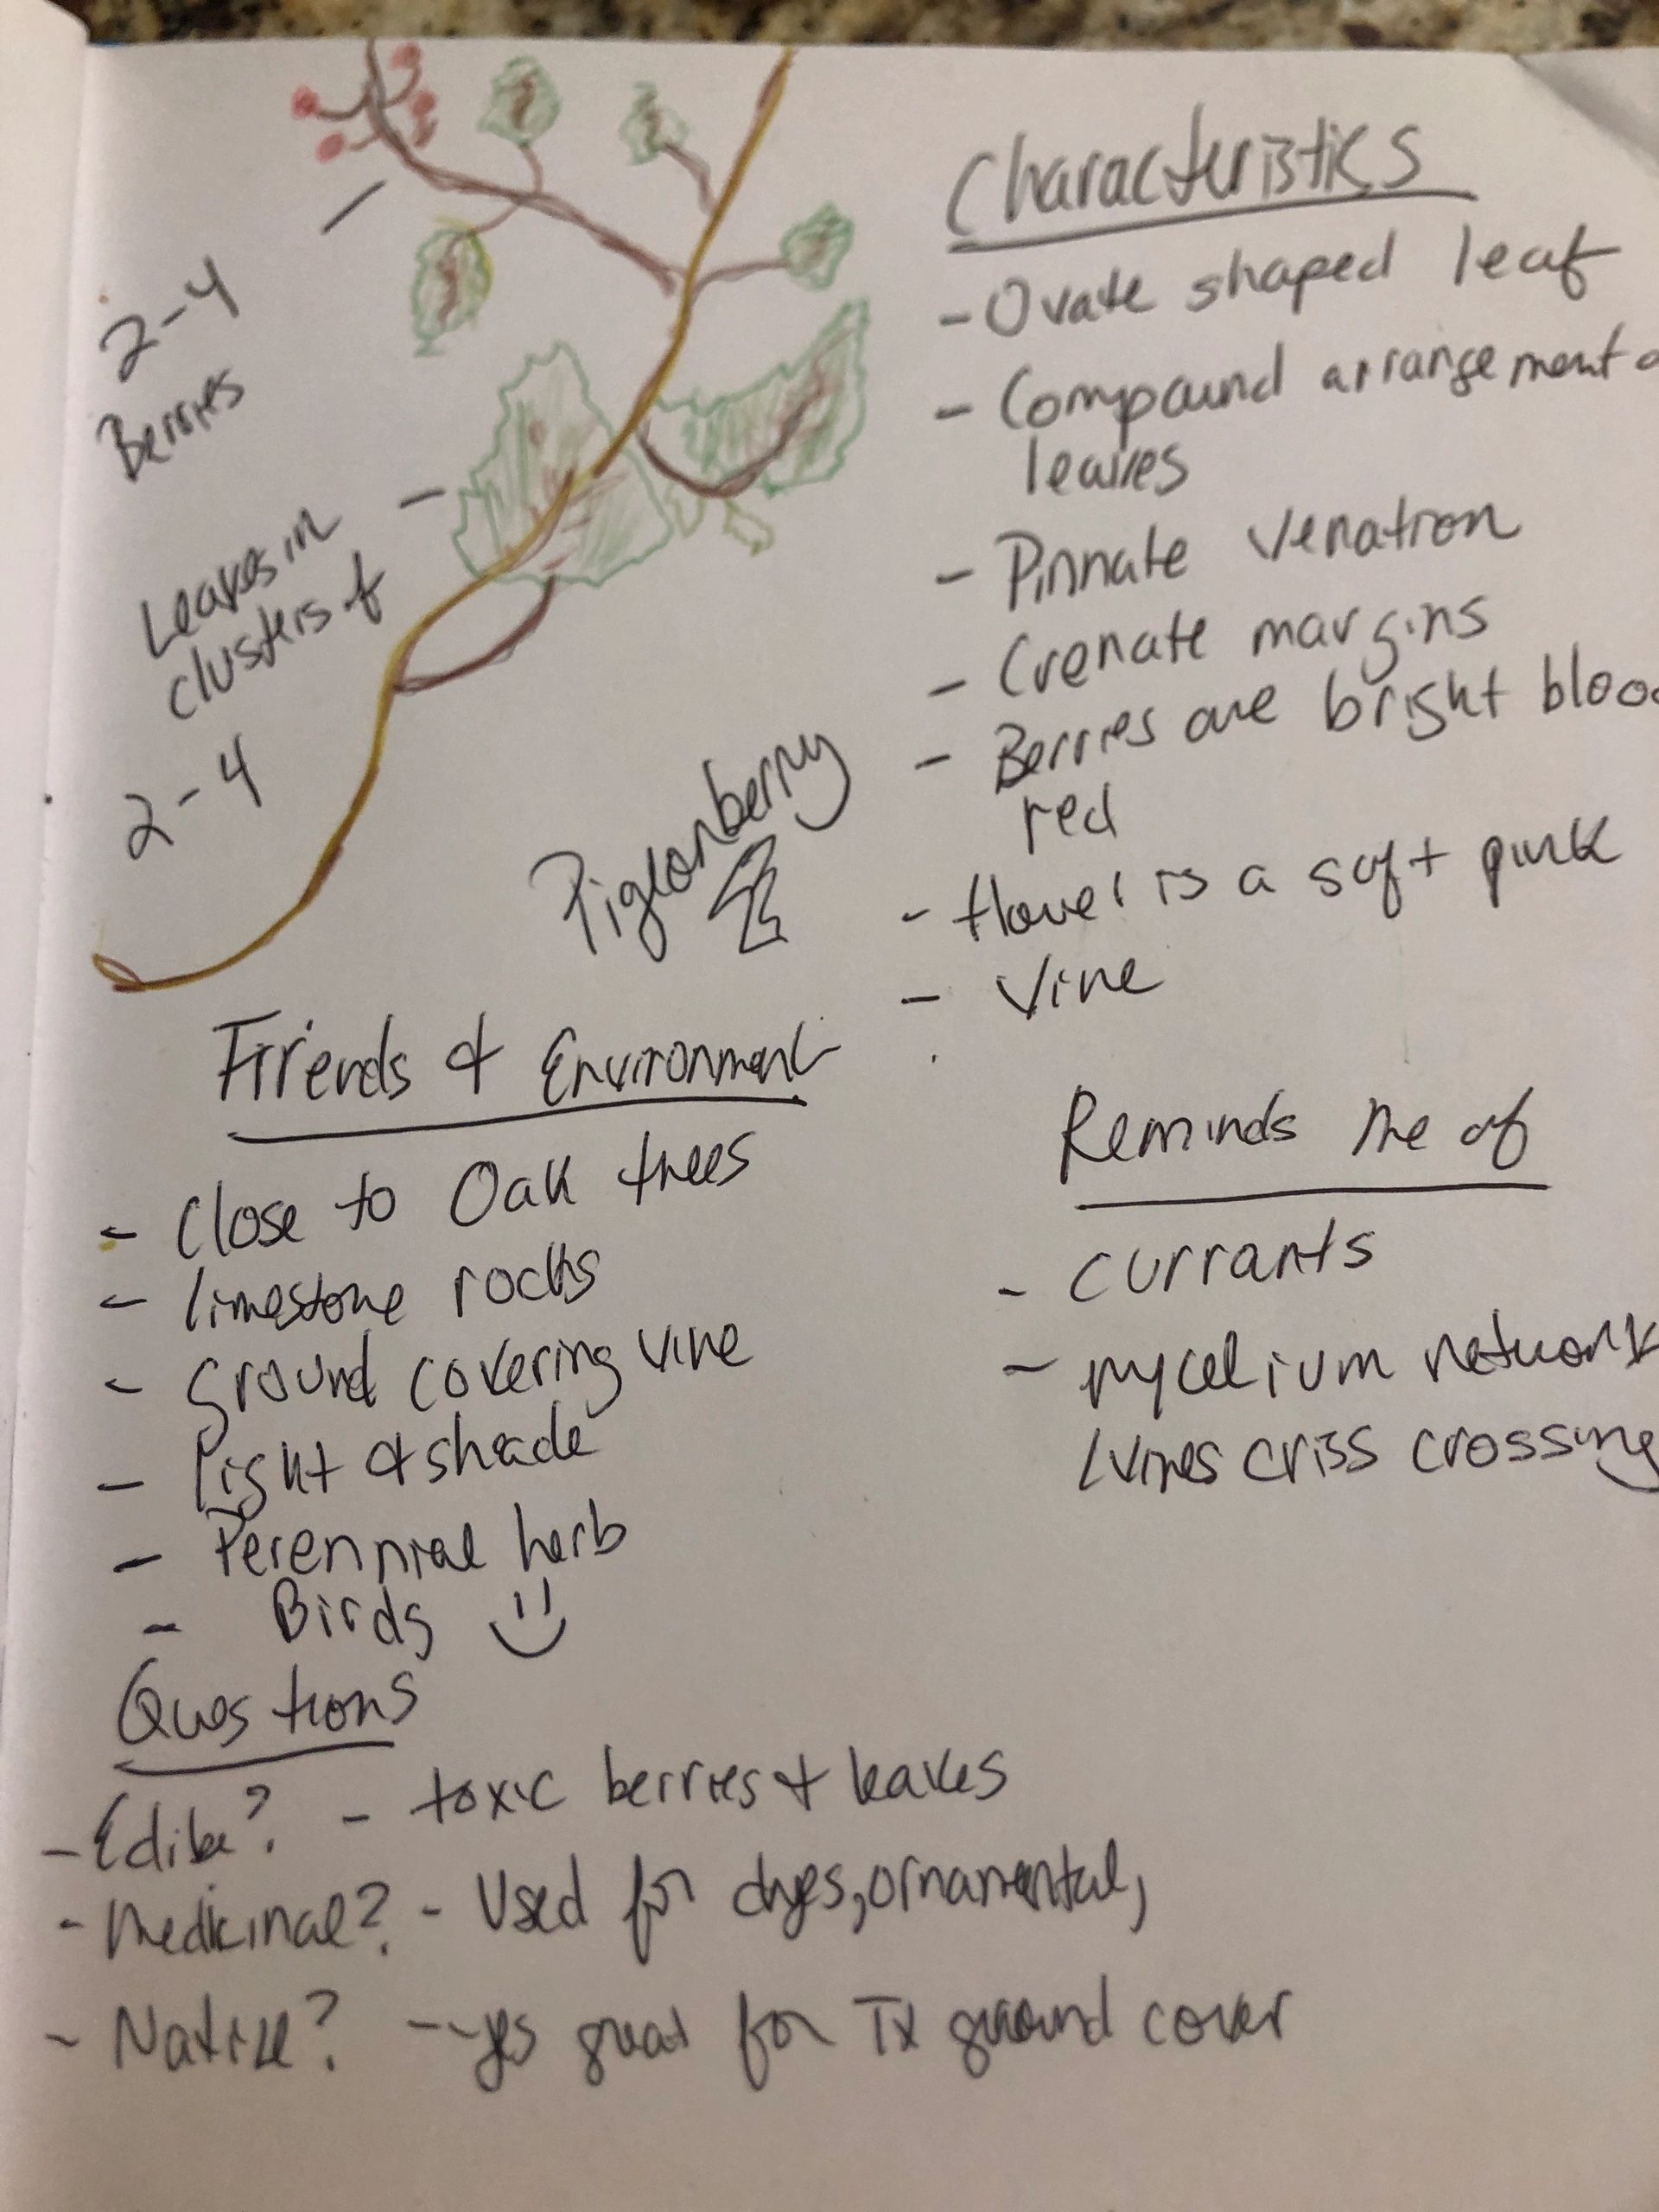 2-4
Berries
Leaves in
clusters of
2-4
Pigeonberry
Characteristics
- Ovate shaped leaf
- Compound arrangement
leaves
- Pinnate venation
- Crenate margins
- Berries are bright blood
red
- flower is a soft pink
- Vine
Friends & Environment
- Close to Oak trees
- limestone rocks
- ground covering vine
- Light & shade
- Perennial herb
- Birds
Reminds me of
- currants
- mycelium network
(vines criss crossing
Questions
- Edible? - toxic berries & leaves
- Medicinal? - Used for dyes, ornamental,
- Native? - yes great for Tx ground cover